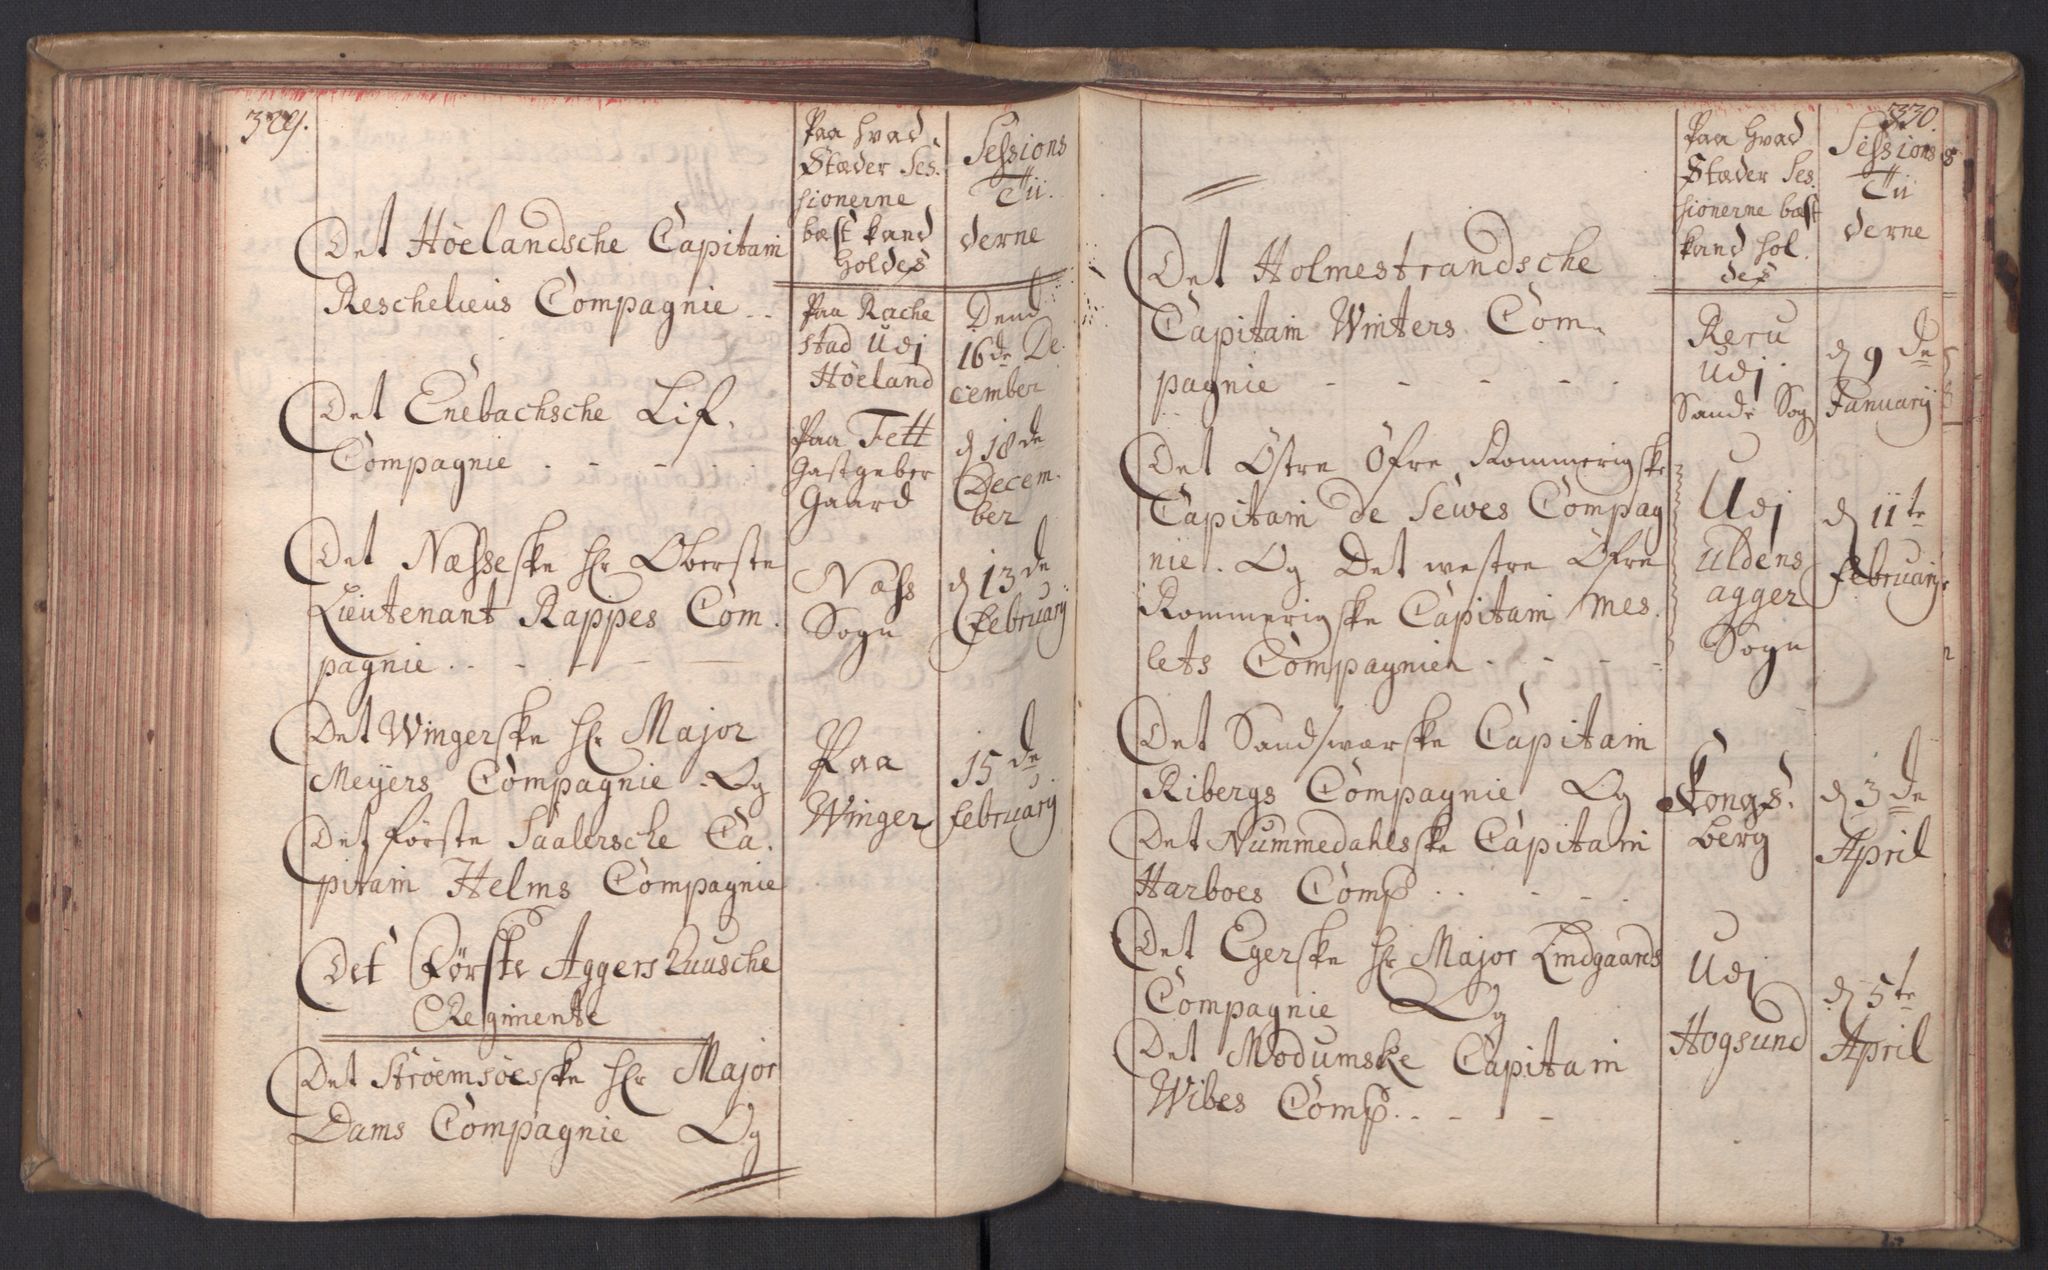 329.
Paa hvad
Stæder Ses-
sionerne
bæst kand
holdes
Sessions
Tii-
derne
Det Höelandsche Capitain
Reschelieus Compagnie - -
Paa Rache
stad Udj
Höeland
Dend
16de De-
cember
Det Enebachsche Lif-
Compagnie - - - - -
Paa Tett
Gastgeber
Gaard
d 18de
Decem-
ber
Det Næsseske Hr Oberste
Lieutenant Rappes Com-
pagnie - - - - -
Næss
Sogn
d 13de
Februarij
Det Wingerske Hr Major
Meyers Compagnie Og
Det förste Saalersche Ca-
pitain Helms Compagnie
Paa
Winger
15de
Februarij
Det Förste Aggershuusche
Regimente
Det Ströemsöeske Hr Major
Dams Compagnie Og
330.
Paa hvad
Stæder Ses-
sionerne bæst
kand hol-
des
Sessions
Tii
derne
Det Holmestrandsche
Capitain Winters Com-
pagnie - - - - -
Reru
Udj
Sande Sog
d 9de
Januarij
Det Östre Öfre Rommerigske
Capitain de Sewes Compag
nie. Og Det westre Öfre
Rommerigske Capitain Mes-
lets Compagnien - - - -
Udj
Uldens
agger
Sogn
d 11te
Februarij
Det Sandswærske Capitain
Ribergs Compagnie Og
Det Nummedahlsske Capitain
Harboes Comp - - - -
Kongs-
berg
d 3de
April
Det Egerske Hr Major Lindgaards
Compagnie Og
Det Modumske Capitain
Wibes Comp. - - - -
Udj
Hogsund
d 5te
April